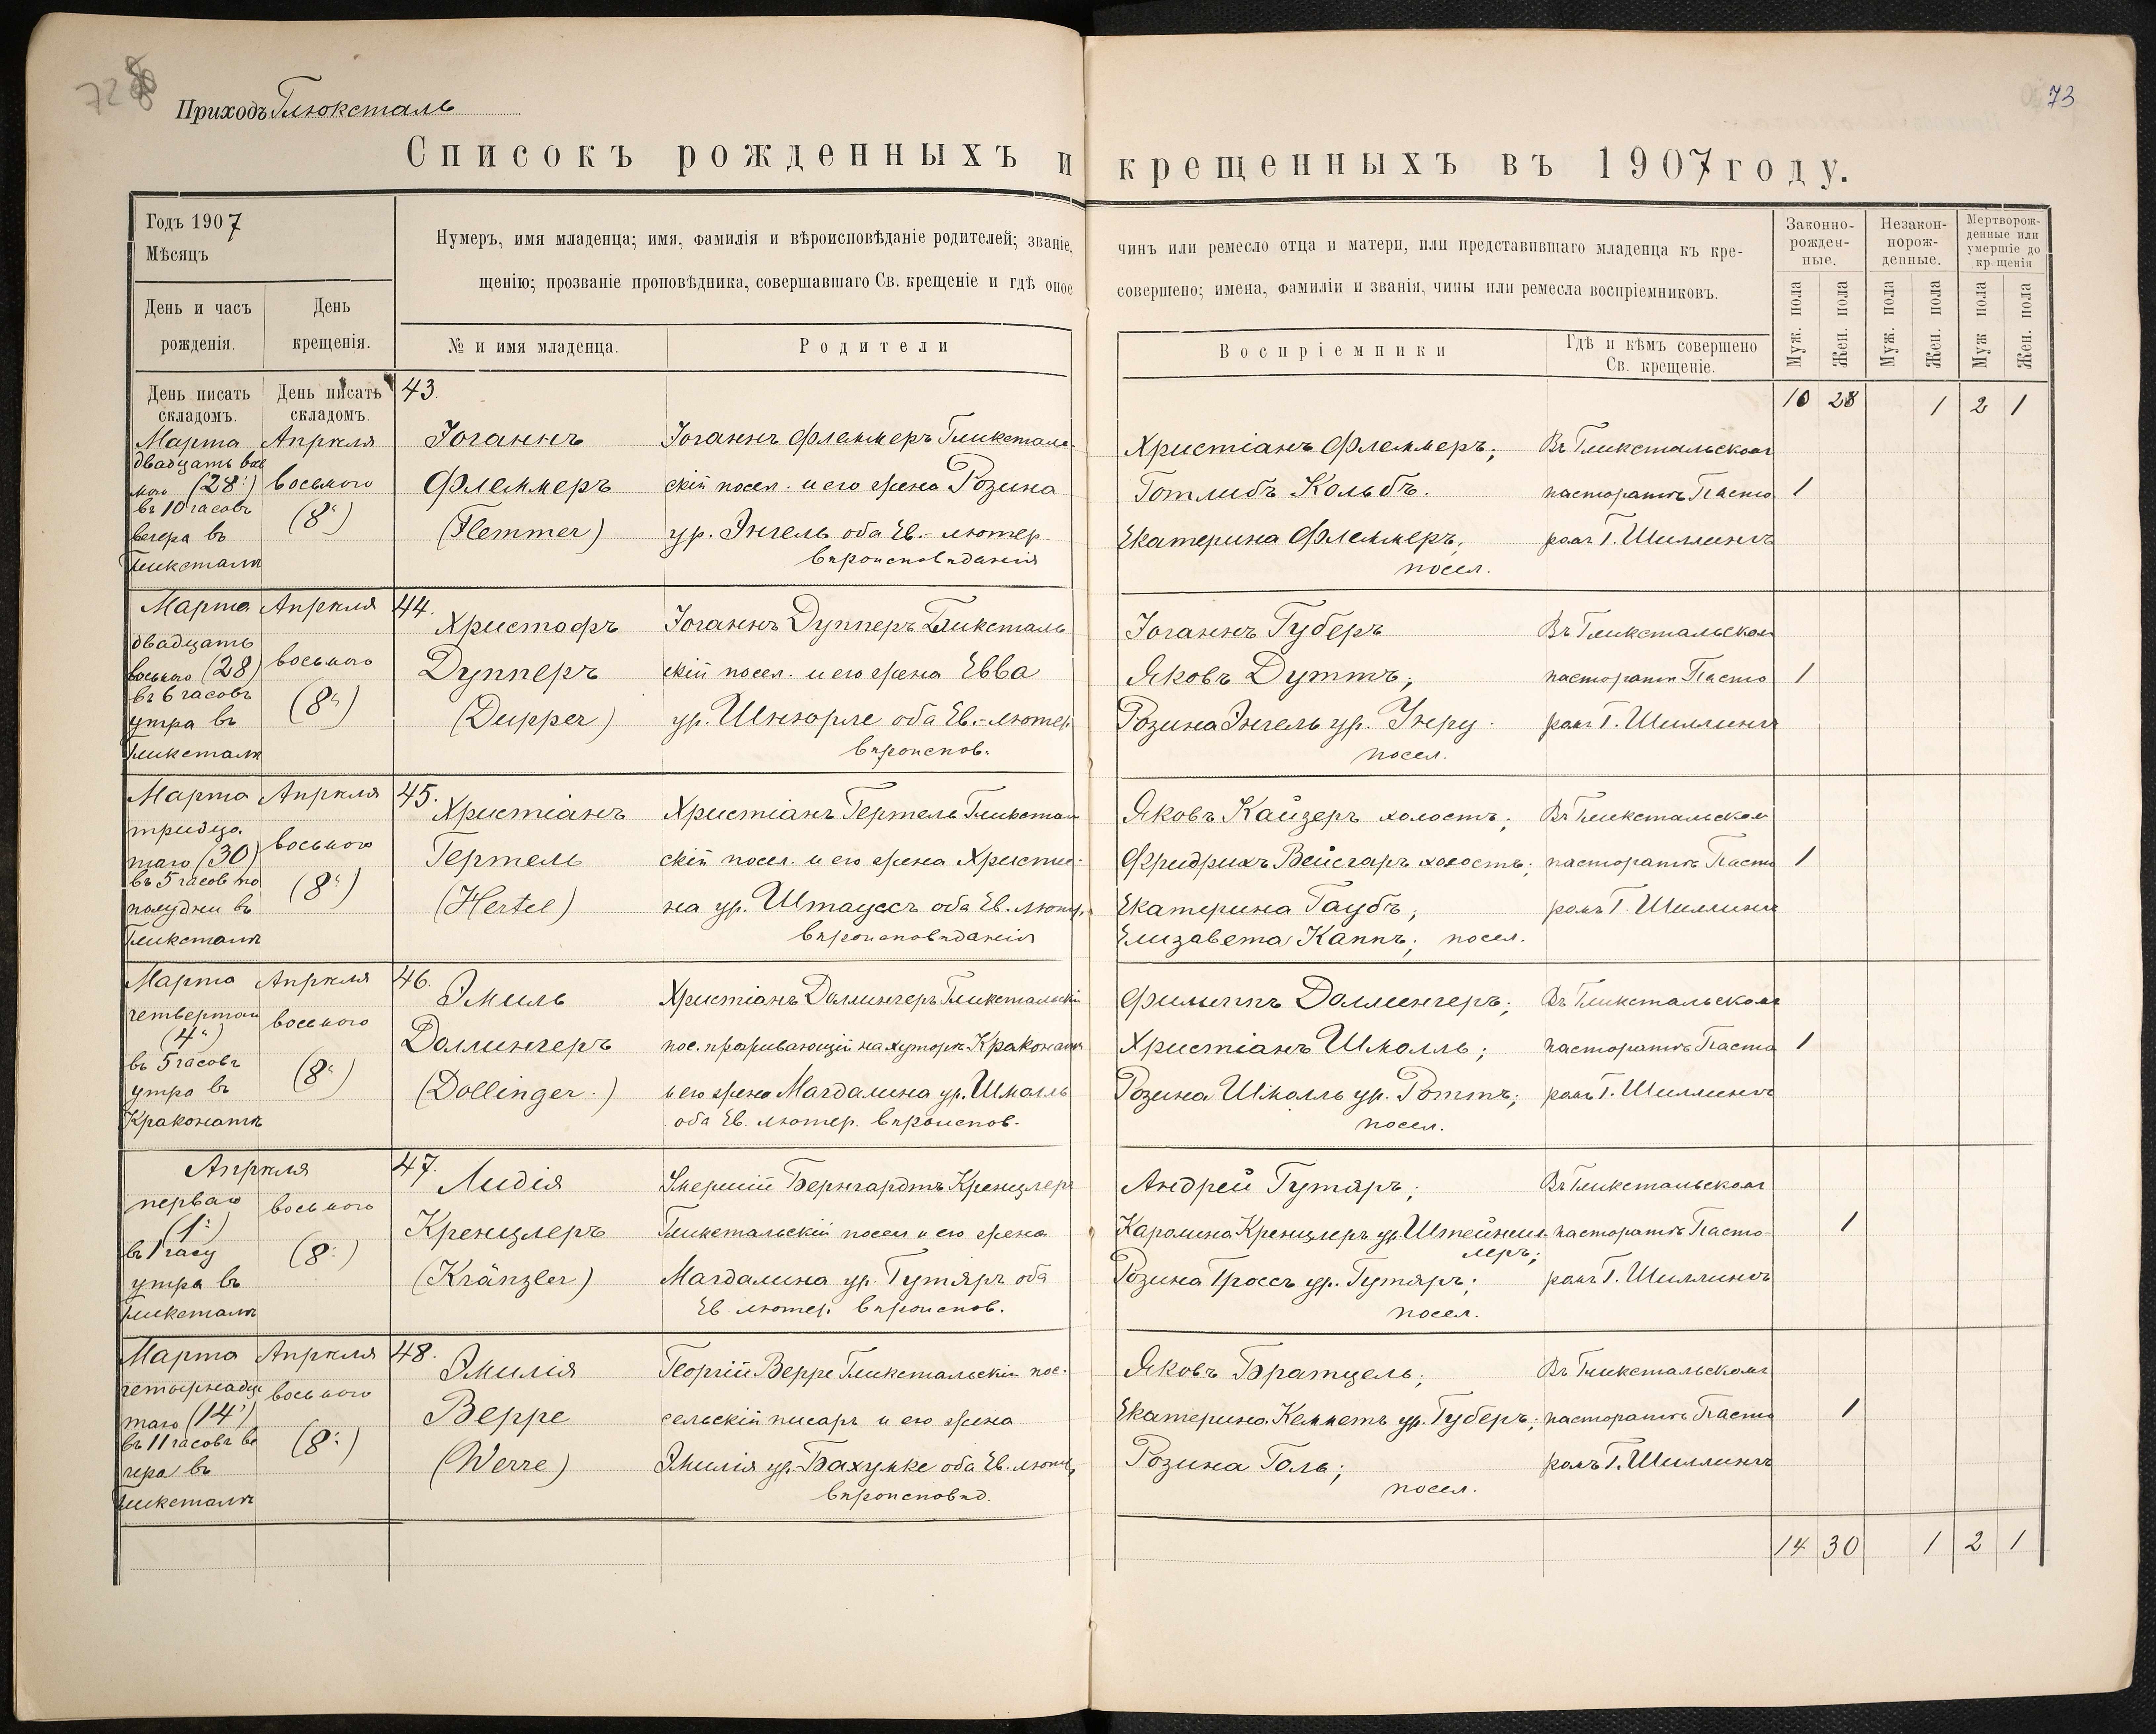 72
73
Приходъ Глюксталь
Списокъ рожденныхъ и крещенныхъ въ 1907 году.
Годъ 1907
Мѣсяцъ
День и часъ рожденія.
День крещенія.
Нумеръ, имя младенца; имя, фамилія и вѣроисповѣданіе родителей; званіе, чинъ или ремесло отца и матери, или представившаго младенца къ кре-
щенію; прозваніе проповѣдника, совершавшаго Св. крещеніе и гдѣ оное совершено; имена, фамиліи и званія, чины или ремесла воспріемниковъ.
№ и имя младенца.
Родители
Воспріемники
Гдѣ и кѣмъ совершено
Св. крещеніе.
Законно-
рожден-
ные.
Незакон-
норож-
денные.
Мертворож-
денные или
умершіе до
крещенія
Муж. пола
Жен. пола
Муж. пола
Жен. пола
Муж пола
Жен. пола
День писать
складомъ.
День писать
складомъ.
10 28 1 2 1
43.
Марта
двадцать вось
мого (28:)
въ 10 часовъ
вечера въ
Гликсталѣ
Апрѣля
восьмого
(8")
Іоганнъ
Флеммеръ
(Flemmer)
Іоганнъ Флеммеръ Гликсталь-
скій посел. и его жена Розина
ур. Энгель оба Ев.-лютер.
вѣроисповѣданія
Христіанъ Флеммеръ;
Готлибъ Кольбъ.
Екатерина Флеммеръ;
посел.
Въ Гликстальскомъ
пасторатѣ Пасто
ромъ Г. Шиллингъ
1
44.
Марта
двадцать
восьмого (28)
въ 6 часовъ
утра въ
Гликсталѣ
Апрѣля
восьмого
(8")
Христофъ
Дупперъ
(Dupper)
Іоганнъ Дупперъ Гликсталь
скій посел. и его жена Евва
ур. Шнюрле оба Ев.-лютер.
вѣроиспов.
Іоганнъ Губеръ
Яковъ Дуттъ;
Розина Энгель ур.
посел.
Въ Гликстальском
пасторатѣ Пасто
ромъ Г. Шиллингъ
1
45.
Марта
тридца
таго (30)
въ 5 часов по
полудни въ
Гликсталѣ
Апрѣля
восьмого
(8")
Христіанъ
Гертель
(Hertel)
Христіанъ Гертель Гликсталь
скій посел. и его жена Христи-
на ур. Штауссъ оба Ев. лютер.
вѣроисповѣданія
Яковъ Кайзеръ холостъ;
Фридрихъ Вейсгаръ холостъ;
Екатерина Гаубъ;
Елизавета Каппъ; посел.
Въ Гликстальском
пасторатѣ Пасто
ромъ Г. Шиллингъ
1
46.
Марта
четвертаго
(4")
въ 5 часовъ
утра въ
Краконатѣ
Апрѣля
восьмого
(8")
Эмиль
Доллингеръ
(Dollinger.)
Христіанъ Доллингеръ Гликстальскій
пос. проживающій на хуторѣ Краконатъ
и его жена Магдалина ур. Шмолль
оба Ев. лютер. вѣроиспов.
Филиппъ Доллингеръ;
Христіанъ Шмолль;
Розина Шмолль ур. Роттъ;
посел.
Въ Гликстальскомъ
пасторатѣ Пасто
ромъ Г. Шиллингъ
1
47.
Апрѣля
перваго
(1:)
въ 1 часу
утра въ
Гликсталѣ
восьмого
(8:)
Лидія
Кренцлеръ
(Kränzler)
Умершій Бернгардтъ Кренцлеръ
Гликстальскій посел и его жена
Магдалина ур. Гутяръ оба
Ев. лютер. вѣроиспов.
Андрей Гутяръ;
Каролина Кренцлеръ ур. Штейнми
леръ;
Розина Гроссъ ур. Гутяръ;
посел.
Въ Гликстальскомъ
пасторатѣ Пасто-
ромъ Г. Шиллингъ
1
48.
Марта
четырнадца
таго (14")
въ 11 часовъ ве
чера въ
Гликсталѣ
Апрѣля
восьмого
(8:)
Эмилія
Верре
(Werre)
Георгій Верре Гликстальскій пос.
сельскій писарь и его жена
Эмилія ур. Бахумке оба Ев. лютер
вѣроисповѣд.
Яковъ Братцель;
Екатерина Кемметъ ур. Губеръ;
Розина Голь;
посел.
Въ Гликстальскомъ
пасторатѣ Пасто
ромъ Г. Шиллингъ
1
14 30 1 2 1